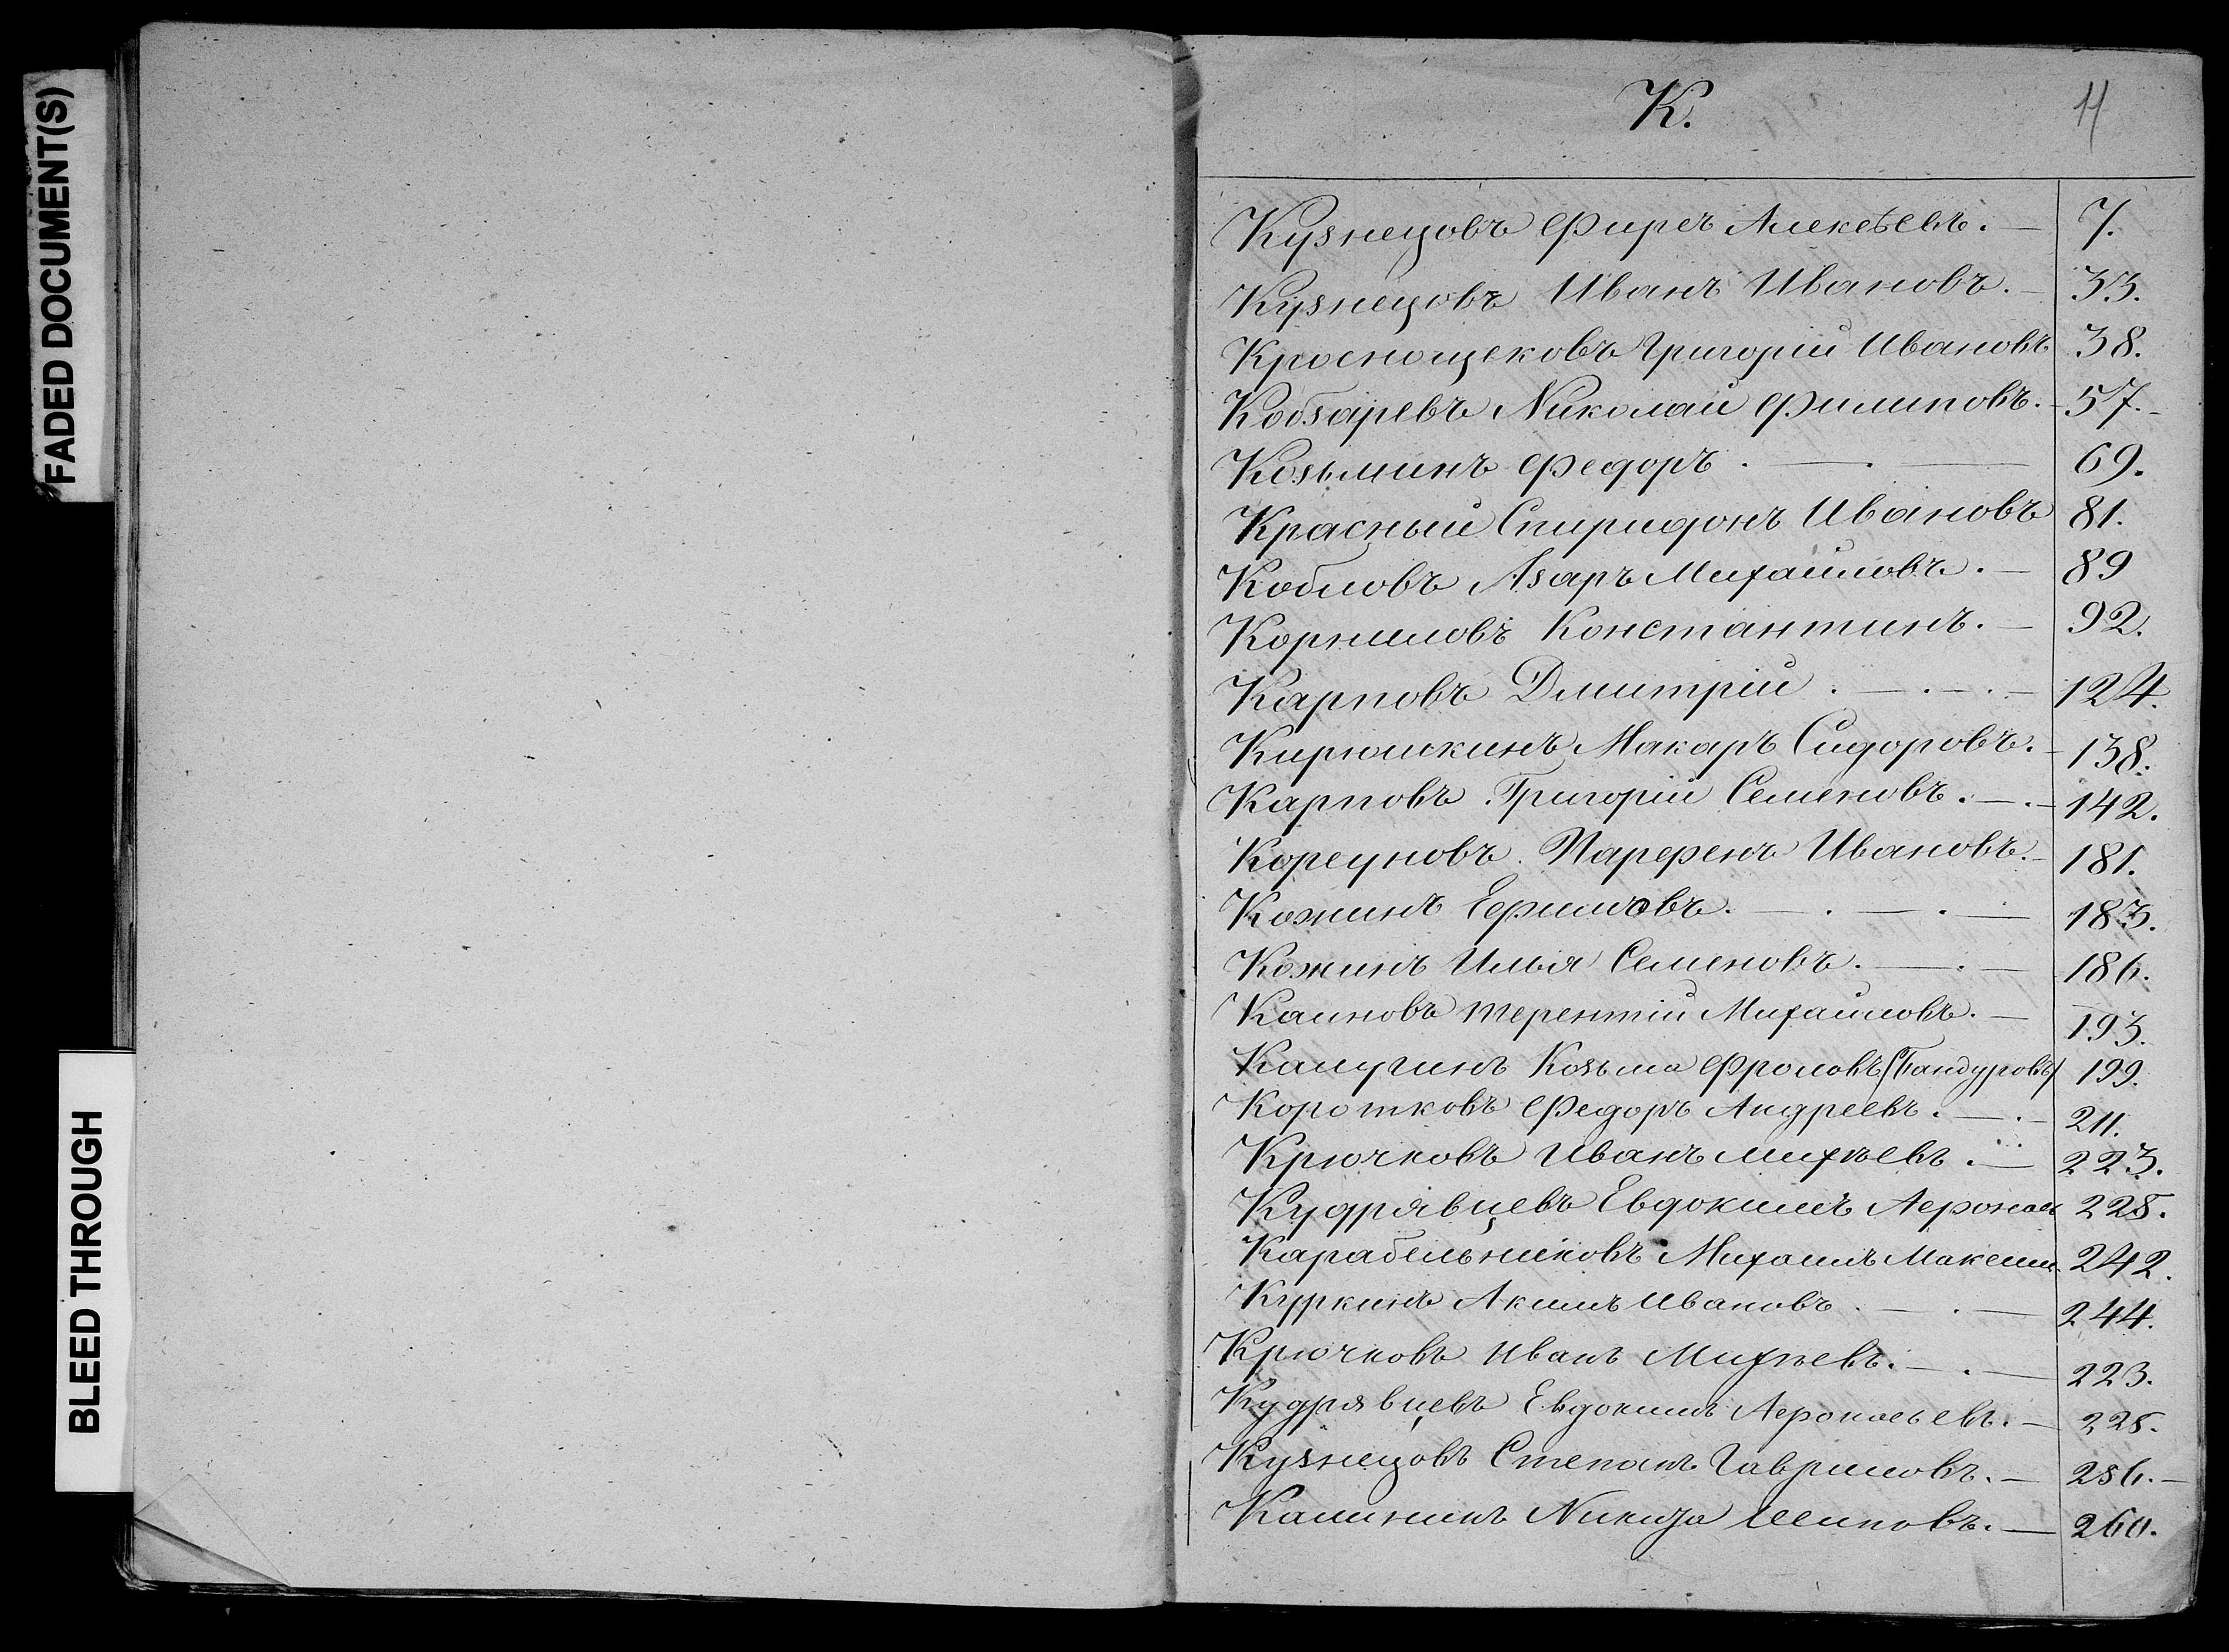 FADED DOCUMENT(S)
BLEED THROUGH
К.
11
Кузнецовъ Фирсъ Алексѣевъ. — 7.
Кузнецовъ Иванъ Ивановъ. — 33.
Краснощековъ Григорій Ивановъ 38.
Кобзаревъ Николай Филиповъ. — 57. —
Козьминъ Федоръ . — . — 69.
Красный Спиридонъ Ивановъ 81.
Кобловъ Азаръ Михайловъ. — 89
Корниловъ Константинъ. — 92.
Карповъ Дмитрій . — . — . — 124.
Кирюшкинъ Макаръ Сидоровъ. — 138.
Карповъ Григорій Семеновъ. — . — 142.
Корсуновъ Парфенъ Ивановъ. — 181.
Кожинъ . — . — . — 183.
Кожинъ Илья Семеновъ. — . — 186.
Каиновъ Терентій Михайловъ. — 193.
Калугинъ Козьма Фроловъ (Бандуровъ) 199.
Коротковъ Федоръ Андреевъ. — . — 211.
Крючковъ Иванъ Михѣевъ . — 223.
Кудрявцевъ Евдокимъ 228.
Карабельниковъ Михаилъ Максим. 242.
Куркинъ Акимъ Ивановъ . — . — 244.
Крючковъ Иванъ Михѣевъ. — . — 223.
Кудрявцевъ Евдокимъ — 228.
Кузнецовъ Степанъ Гавриловъ. — 256. —
Калининъ Никита — 260.